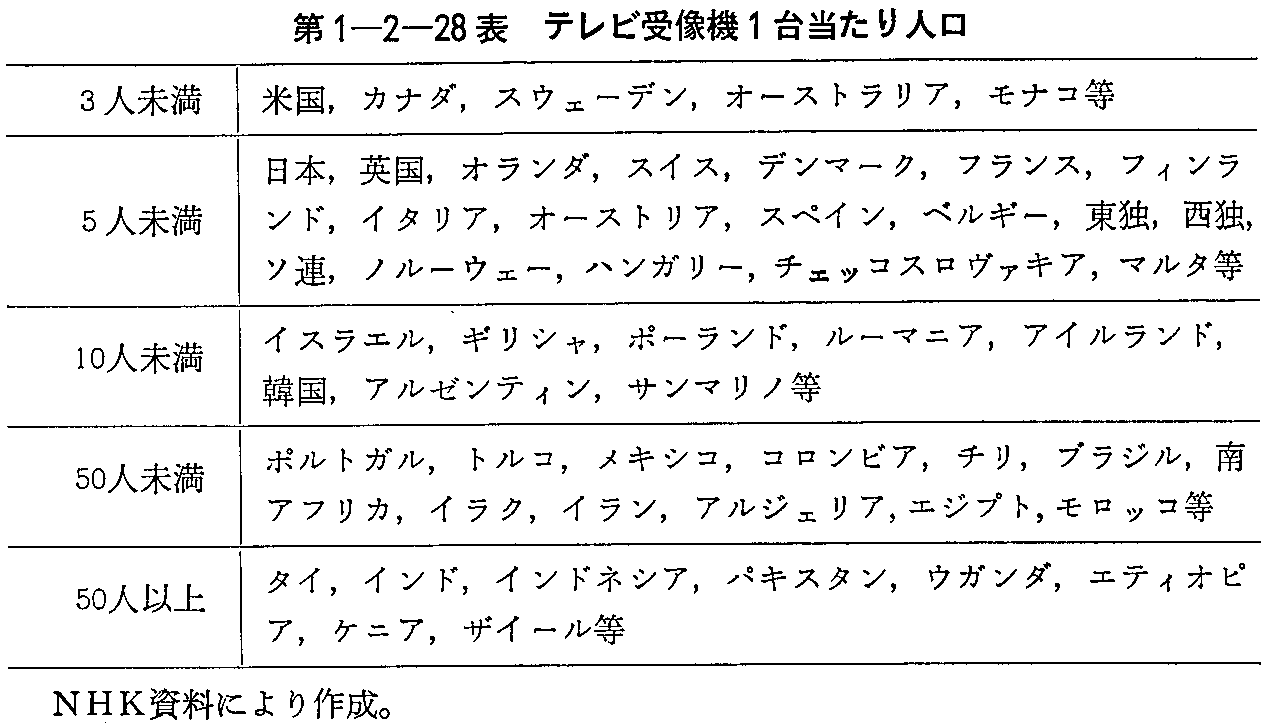 第1―2―28表　テレビ受像機1台当たり人口
3人未満　米国，カナダ，スウェーデン，オーストラリア，モナコ等
日本，英国，オランダ，スイス，デンマーク，フランス，フィンラ
5人未満　ンド，イタリア，オーストリア，スペイン，ベルギー，東独，西独，
ソ連，ノルーウェー，ハンガリー，チェッコスロヴァキア，マルタ等
10人未満　イスラエル，ギリシャ，ポーランド，ルーマニア，アイルランド，
韓国，アルゼンティン，サンマリノ等
50人未満　ポルトガル，トルコ，メキシコ，コロンビア，チリ，ブラジル，南
アフリカ，イラク，イラン，アルジェリア，エジプト，モロッコ等
50人以上　タイ，インド，インドネシア，パキスタン，ウガンダ，エティオピ
ア，ケニア，ザイール等
NHK資料により作成。